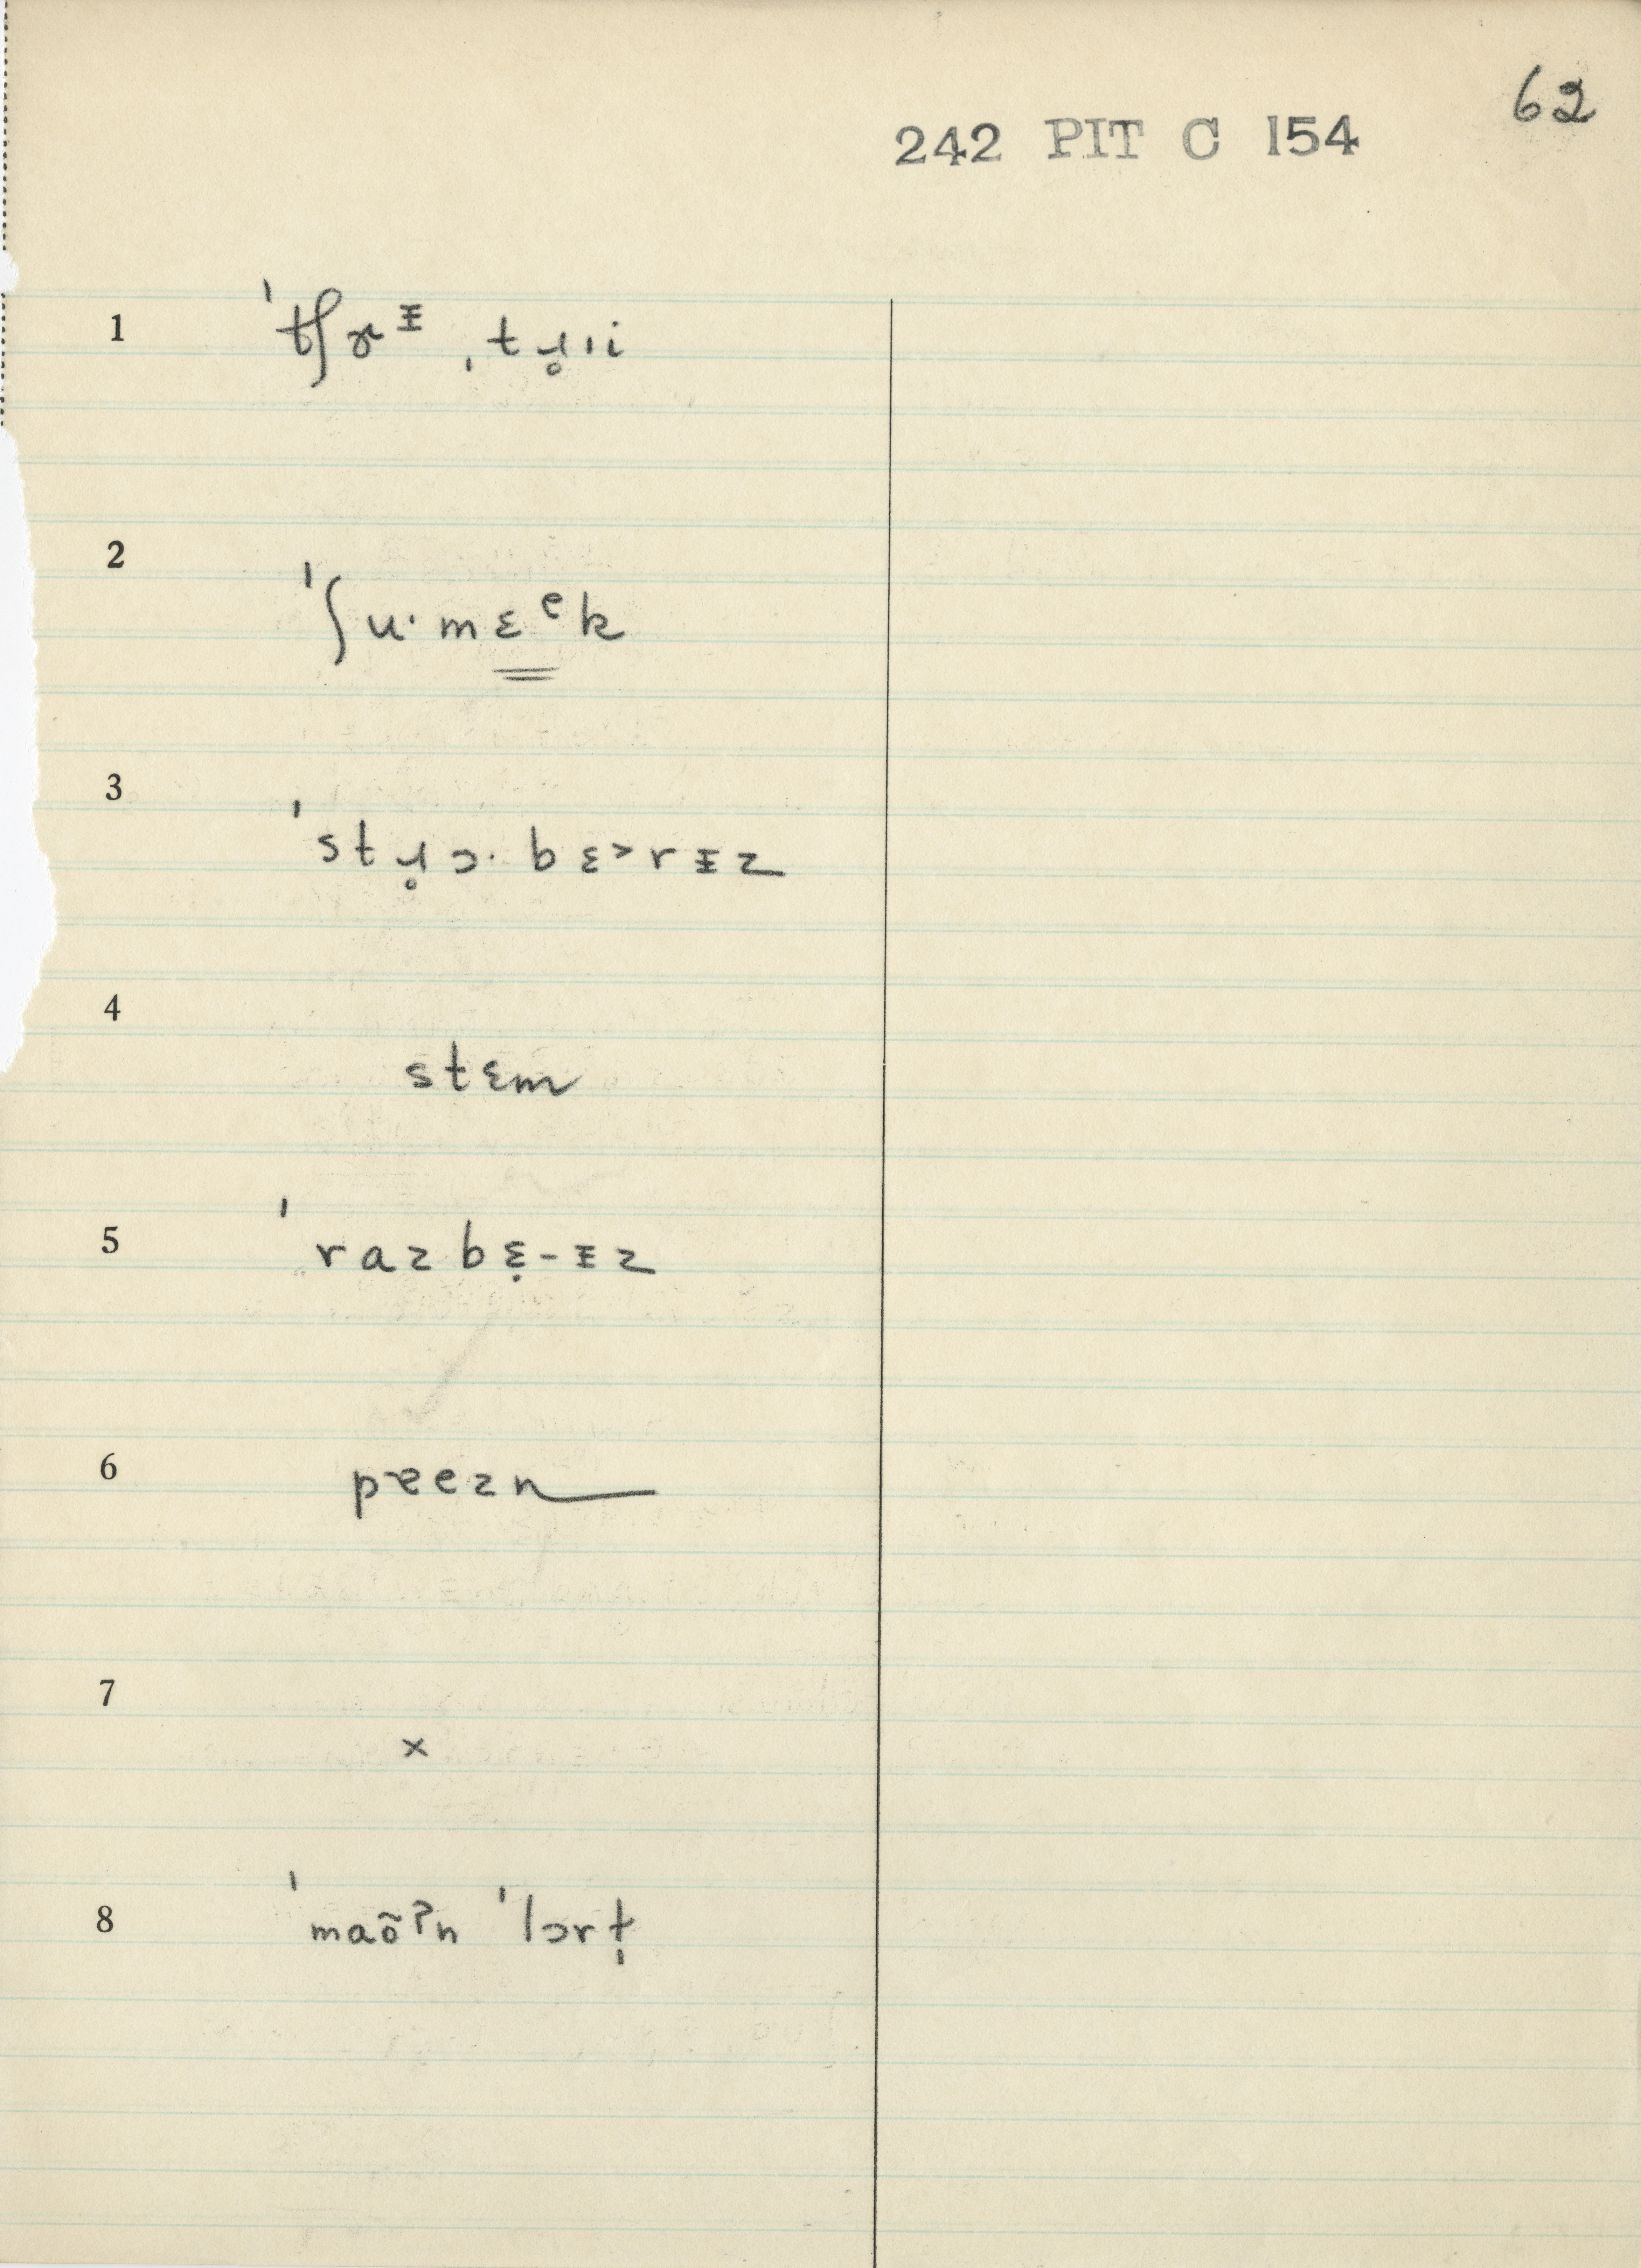 62
242 PIT C 154
1 ˈtʃɚᵻ ˌtɹ̥ɪi
2 ˈʃu·mɛᵉk
3 ˈstɹ̥ɔ·bɛ˃rᵻz
4 stɛm
5 ˈrazbɛ̣-ᵻz
6 pɐezn
7 ×
8 ˈmaõˀn ˈlɔrt̩